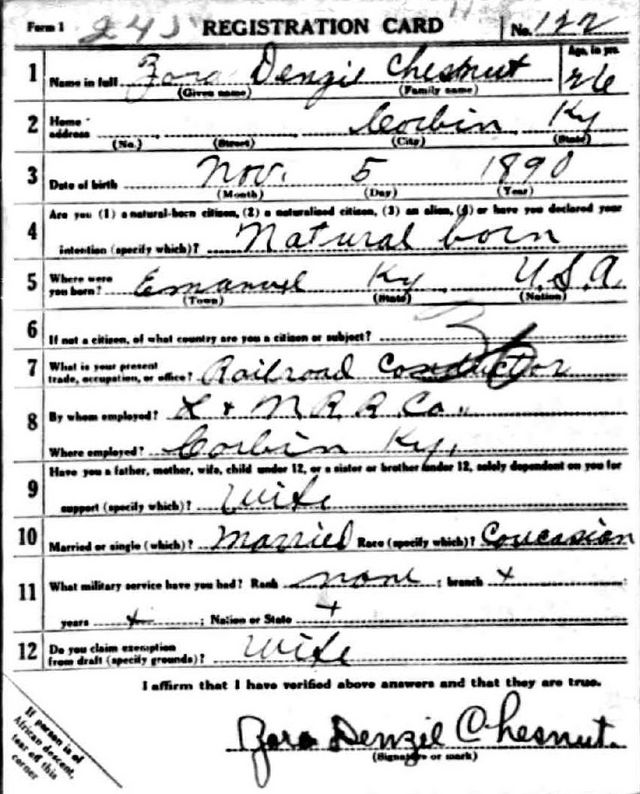 Form 1 243 REGISTRATION CARD No. 122
1 Name in full Zora Denzil Chestnut Age, in yrs. 26
(Given name) (Family name)
2 Home address Corbin Ky
(No.) (Street) (City) (State)
3 Date of birth Nov. 5 1890
(Month) (Day) (Year)
4 Are you (1) a natural-born citizen, (2) a naturalized citizen, (3) an alien, (4) or have you declared your
intention (specify which)? Natural born
5 Where were you born? Emanuel Ky U.S.A
(Town) (State) (Nation)
6 If not a citizen, of what country are you a citizen or subject?
7 What is your present trade, occupation, or office? Railroad Conductor
8 By whom employed? L + N R R Co.
Where employed? Corbin Ky.
9 Have you a father, mother, wife, child under 12, or a sister or brother under 12, solely dependent on you for
support (specify which)? Wife
10 Married or single (which)? Married Race (specify which)? Coucasian
11 What military service have you had? Rank none ; branch x
years x ; Nation or State x
12 Do you claim exemption from draft (specify grounds)? Wife
I affirm that I have verified above answers and that they are true.
Zora Denzil Chesnut.
(Signature or mark)
If person is of
African descent,
tear off this
corner